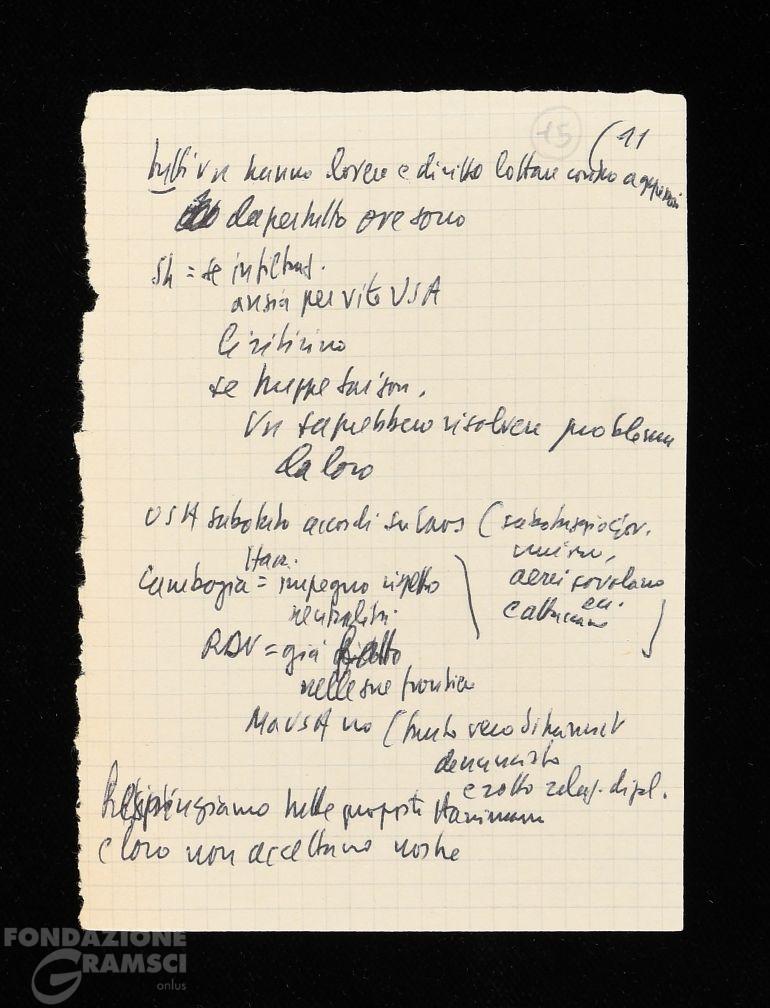 15 (11
tutti vn hanno dovere e diritto lottare contro aggressori
dapertutto ove sono
Sh = se infiltraz.
ansia per vite USA
li ritirino
se truppe saigon.
Vn saprebbero risolvere problema
da loro
USA sabotato accordi su Laos (sabotaggio gov.
unione,
aerei sorvolano
ecc.
e attaccano
Harr.
Cambogia = impegno rispetto
neutralità.
RDV = già fatto
nelle sue frontiere
Ma USA no (tanto vero Sihanouk
denunciato
e rotto relaz. dipl.
Respingiamo tutte proposte Harrimann
e loro non accettano nostre
FONDAZIONE
GRAMSCI
onlus